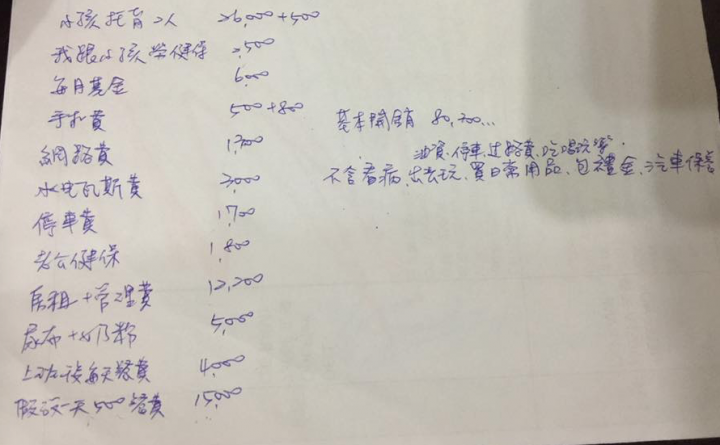 小孩托育2人 26,000+500
我跟小孩勞健保 2,500
每月基金 6,000
手机費 500+800
網路費 1,200
水电瓦斯費 3,000
停車費 1,700
老公健保 1,800
房租+管理費 12,200
尿布+奶粉 5,000
上班後每天餐費 4,000
假設一天500餐費 15,000
基本開銷 80,200...
油資、停車、过路費、吃喝玩樂、
不含看病、出去玩、買日常用品、包禮金、汽車保養